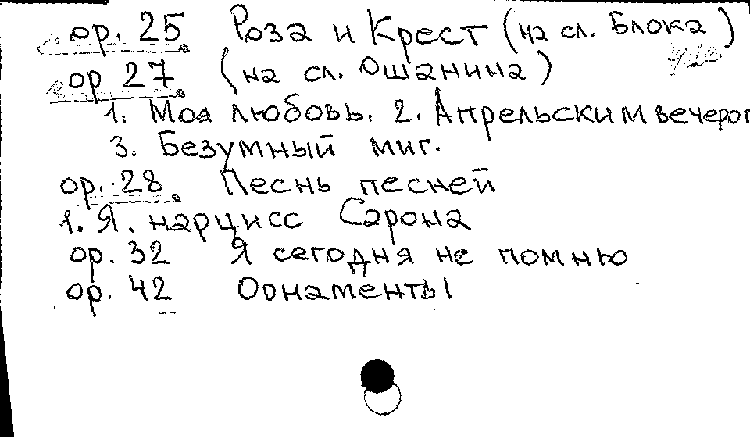 ор. 25 Роза и Крест (на сл. Блока)
ор 27 (на сл. Ошанина)
1. Моя любовь. 2. Апрельским вечером
3. Безумный миг.
ор. 28. Песнь песней
1. Я. нарцисс Сарона
ор. 32 Я сегодня не помню
ор. 42 Орнаменты